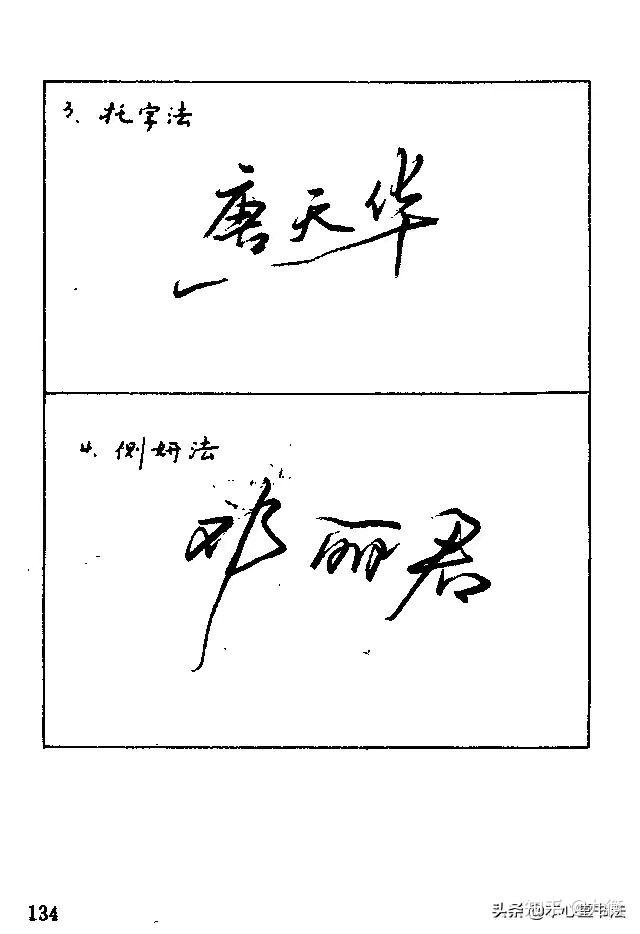 3、托字法
唐天华
4、侧妍法
邓丽君
134
头条@木心堂书法